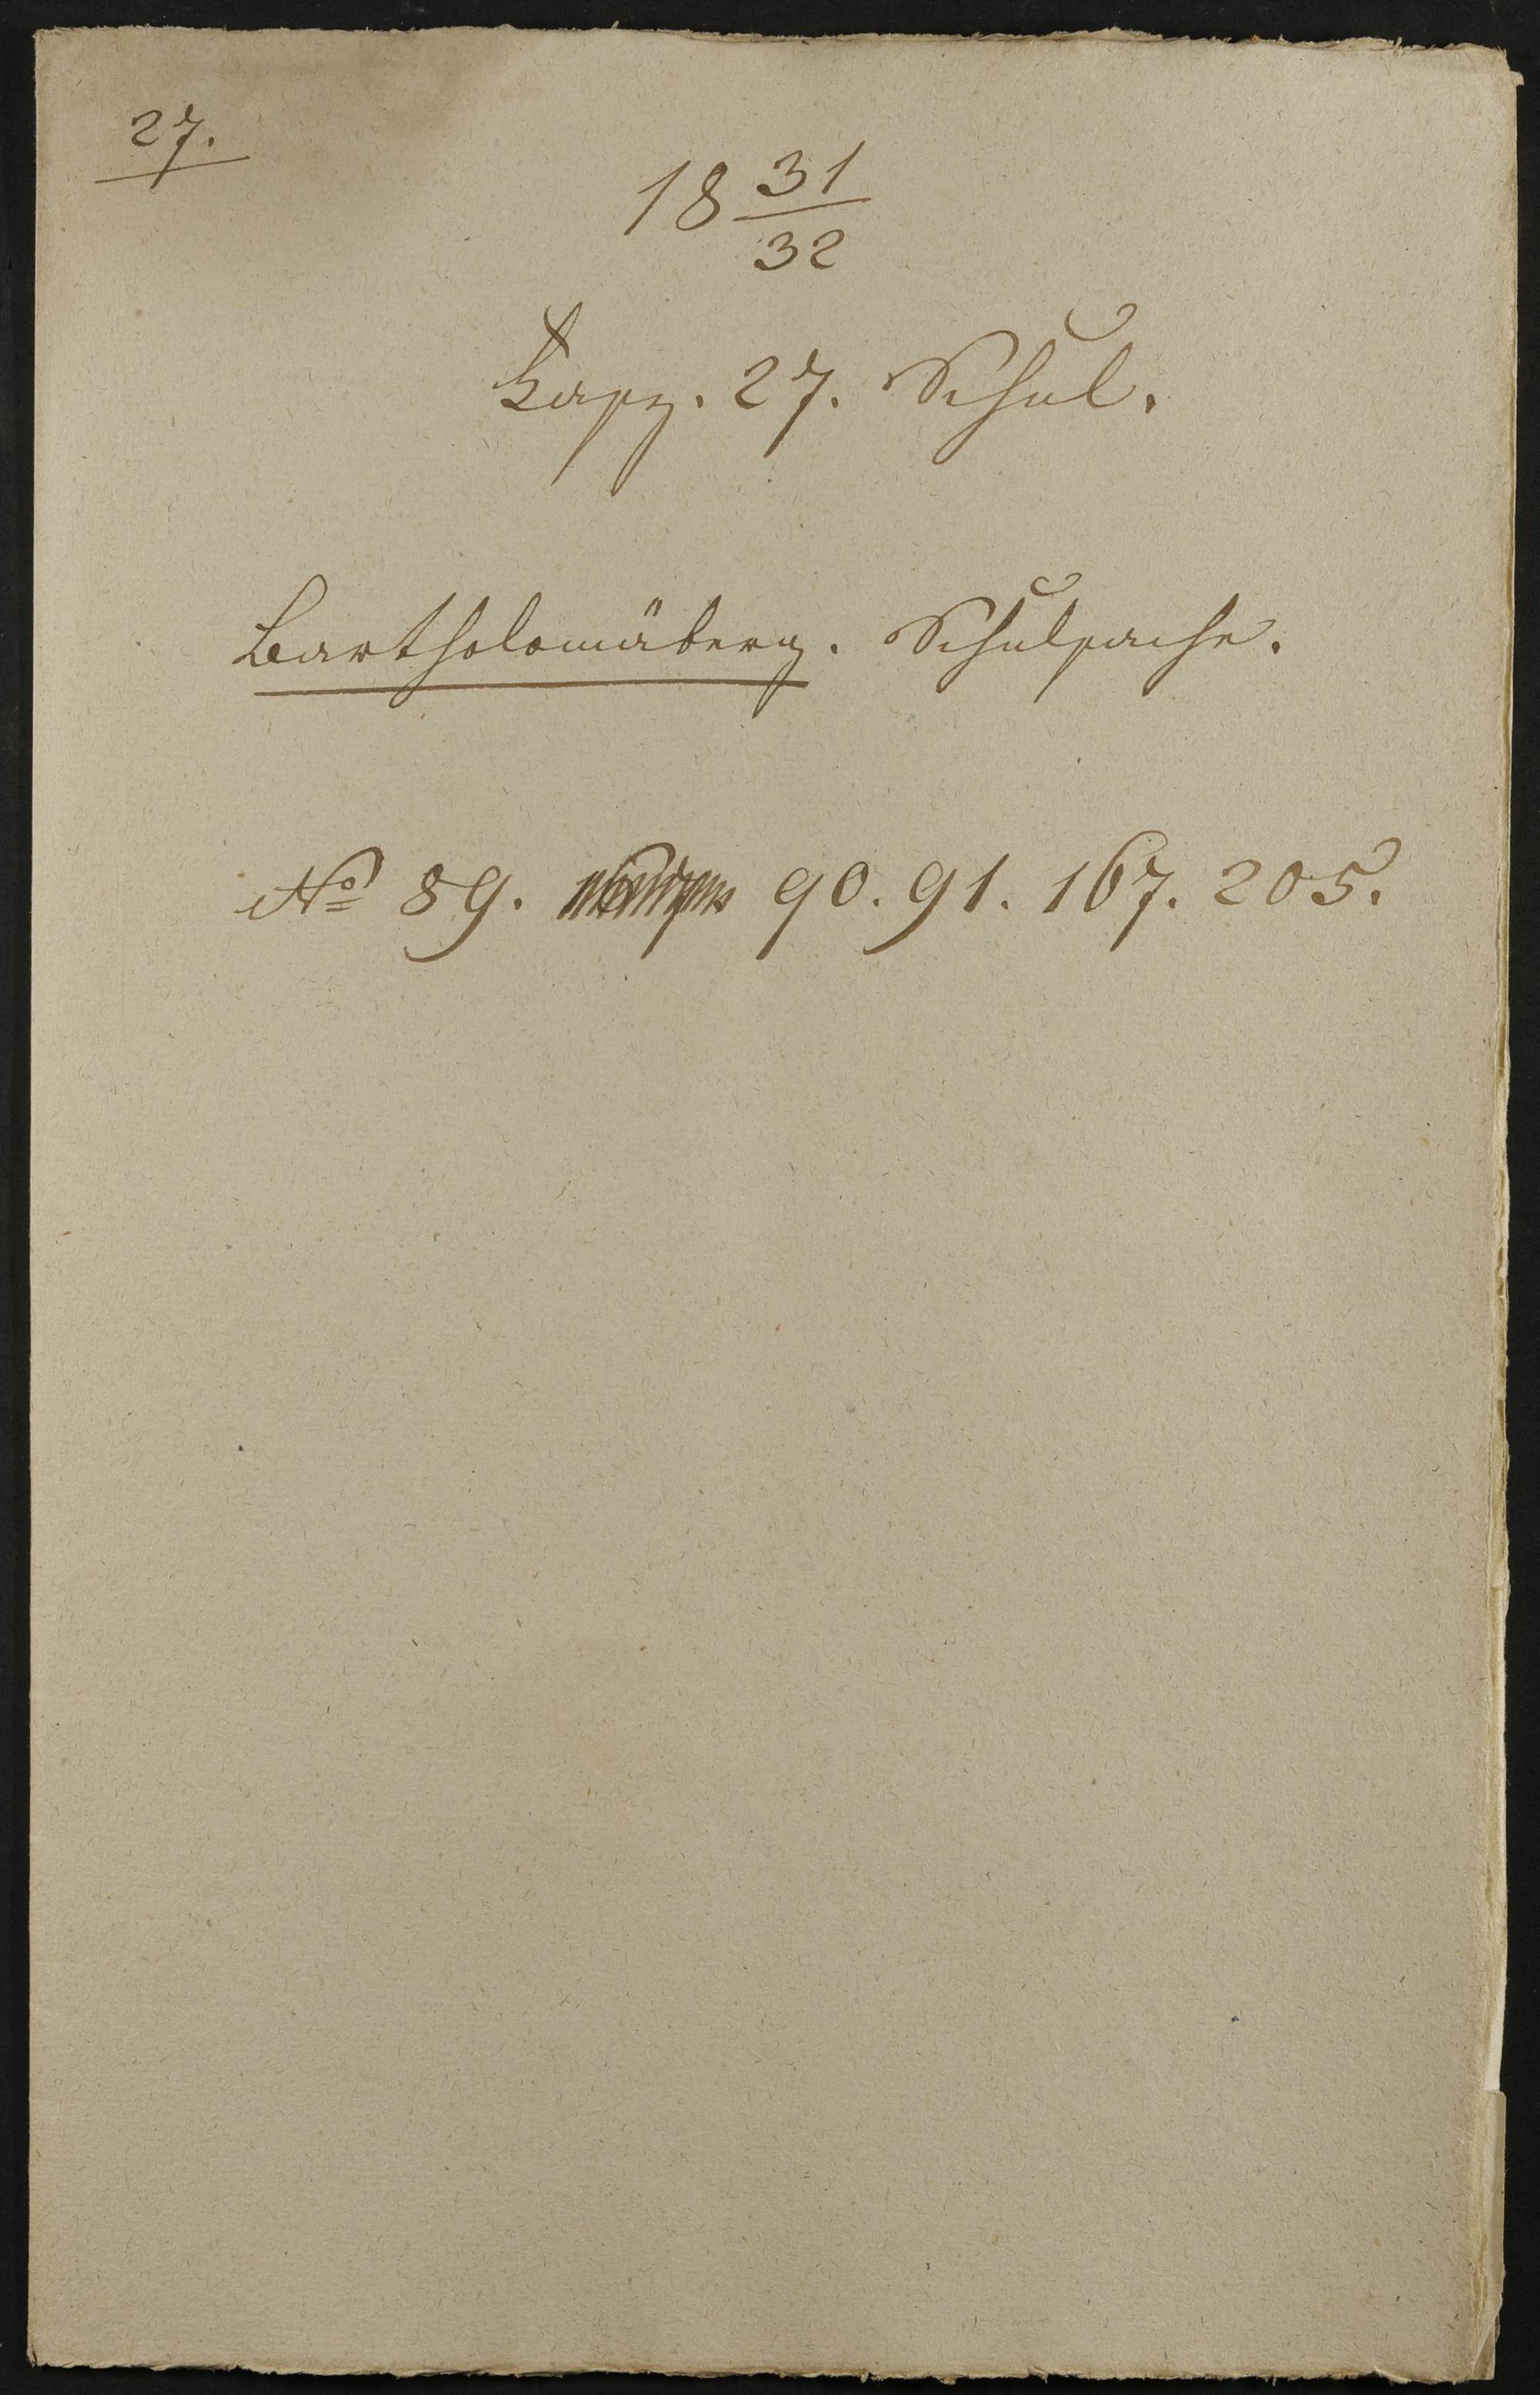 27.
18 31/32
Fasz. 27. Schul.
Bartholomäberg. Schulsache.
No 89. 90. 91. 167. 205.